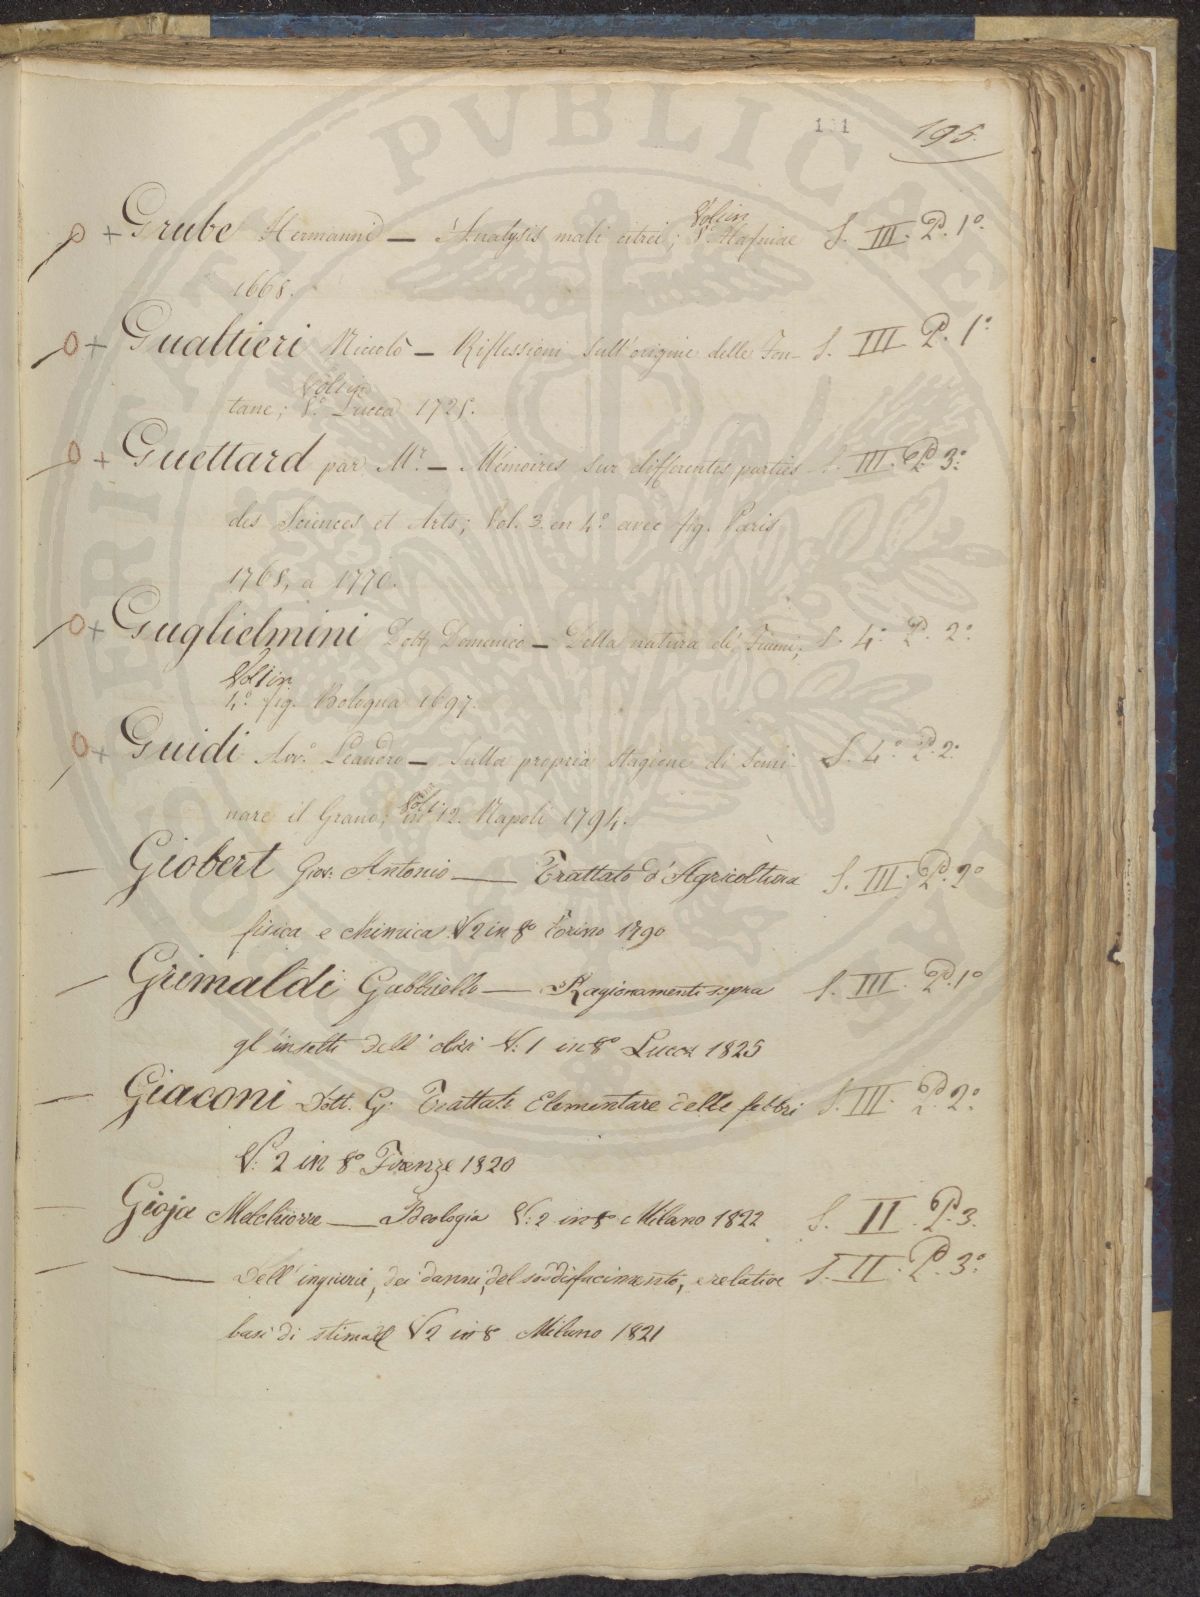 131 195.
Grube Hermanni — Analysis mali citrei; Vol in 8º. Hafniae S. III. P. 1º.
1668.
Gualtieri Niccolò — Riflessioni sull'origine delle Fon- S. III P. 1º
tane; Vol in 8º. Lucca 1725.
Guettard par Mr. — Mémoires sur differentes parties S. III. P. 3º.
des Sciences et Arts; Vol. 3. en 4º. avec fig. Paris
1768, a 1770.
Guglielmini Dott. Domenico — Della natura de' Fiumi; S. 4º P. 2º.
Vol in 4º. fig. Bologna 1697.
Guidi Leandro — Sulla propria stagione di Semi- S. 4º. P. 2º.
nare il Grano; Vol. in 12. Napoli 1794.
Giobert Giov. Antonio — Trattato d'Agricoltura S. III. P. 2º
fisica e chimica V 2 in 8º Torino 1790
Grimaldi Gabbriello — Ragionamenti sopra S. III. P. 1º
gl'insetti dell' V. 1 in 8º Lucca 1825
Giaconi Dott. G. Trattato Elementare delle febbri S. III. P. 2º.
V: 2 in 8º Firenze 1820
Gioja Melchiorre — Ideologia V: 2 in 8º Milano 1822 S. II. P. 3.
— Dell' ingiurie, dei danni, del soddisfacimento, e relative S. II. P. 3º
basi di stima V 2 in 8 Milano 1821